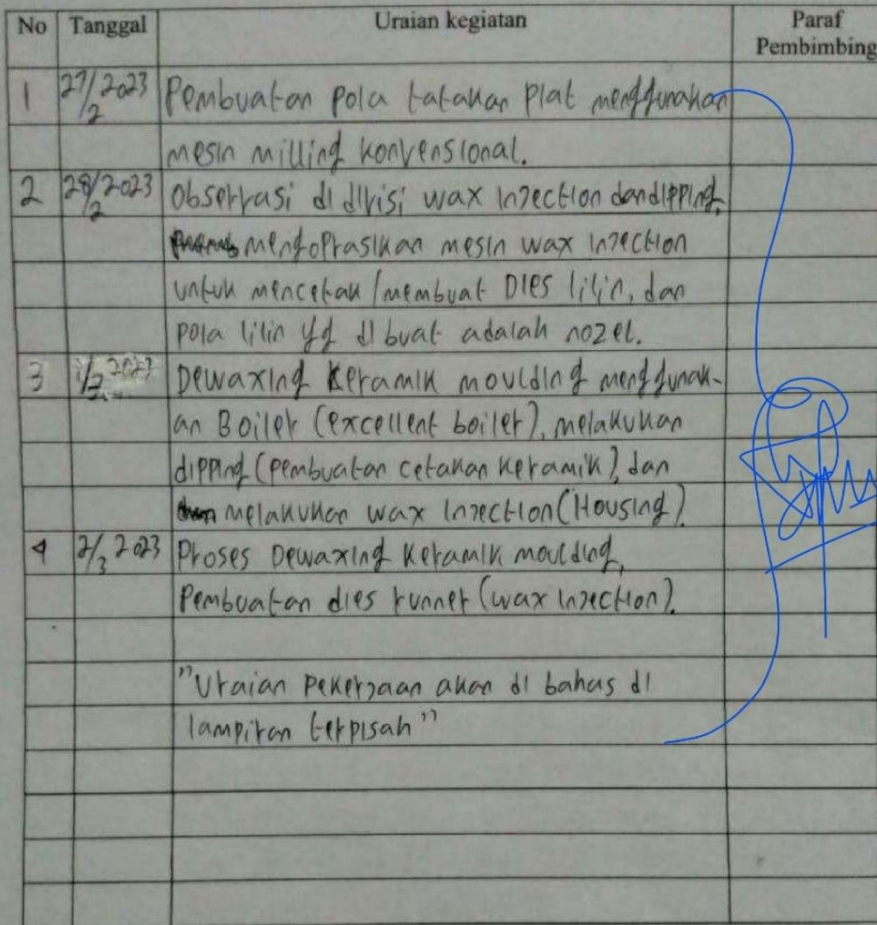 No Tanggal Uraian kegiatan Paraf Pembimbing
1 27/2 2023 Pembuatan pola tatakan plat menggunakan
mesin milling konvensional.
2 28/2 2023 Observasi di divisi wax injection dan dipping,
mengoprasikan mesin wax injection
untuk mencetak / membuat Dies lilin, dan
pola lilin yg di buat adalah nozel.
3 1/3 2023 Dewaxing Keramik moulding menggunak-
an Boiler (excellent boiler), melakukan
dipping (pembuatan cetakan keramik), dan
melakukan wax injection (Housing).
4 2/3 2023 Proses Dewaxing Keramik moulding,
Pembuatan dies runner (wax injection).
"Uraian pekerjaan akan di bahas di
lampiran terpisah"